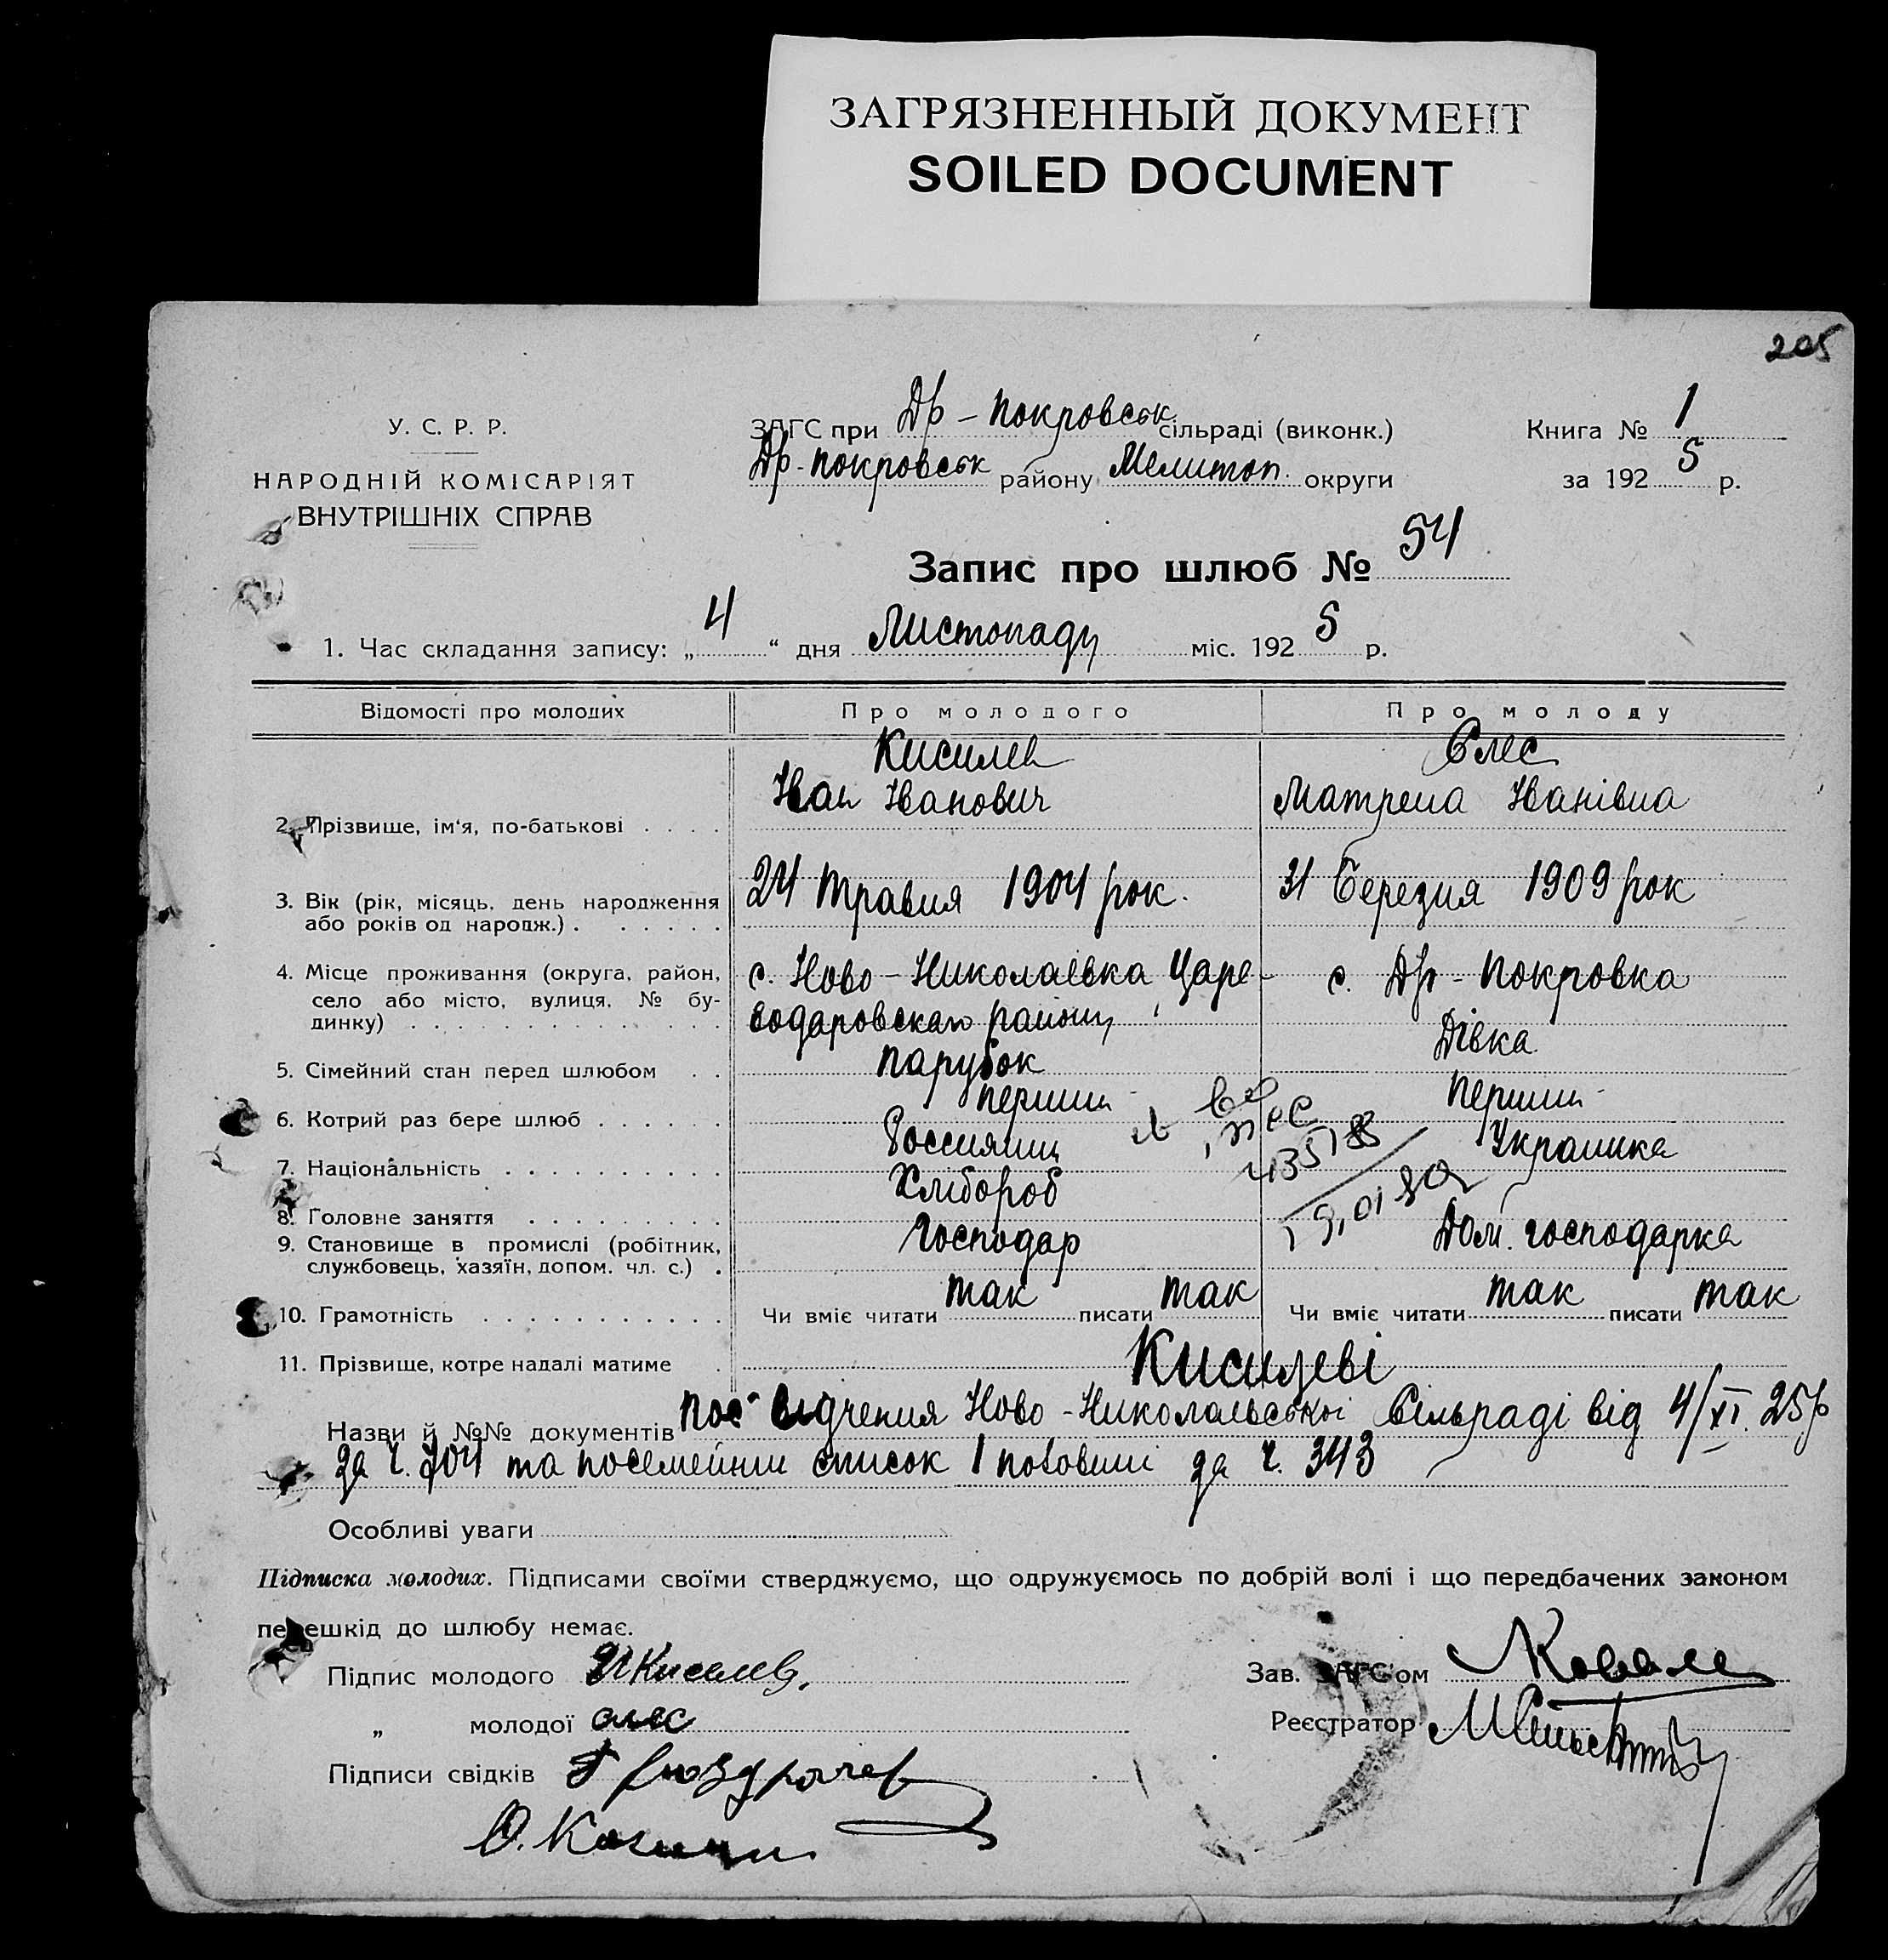 ЗАГРЯЗНЕННЫЙ ДОКУМЕНТ
SOILED DOCUMENT
205
У. С. Р. Р.
НАРОДНІЙ КОМІСАРІЯТ
ВНУТРІШНІХ СПРАВ
ЗАГС при Др-Покровськ сільраді (виконк.)
Др-Покровськ району Мелитоп. округи
Книга № 1
за 1925 р.
Запис про шлюб № 54
1. Час складання запису: „4“ дня Листопаду міс. 1925 р.
Відомості про молодих Про молодого Про молоду
Кисилев Єлес
2. Прізвище, ім'я, по-батькові . . . . Іван Іванович Матрена Іванівна
3. Вік (рік, місяць, день народження 24 Травня 1904 рок. 31 Березня 1909 рок
або років од народж.) . . . . . .
4. Місце проживання (округа, район, с. Ново-Николаєвка Царе- с. Др-Покровка
село або місто, вулиця, № бу-
динку) . . . . . . . . . . . . . водаровскаго району
5. Сімейний стан перед шлюбом . . парубок Дівка
6. Котрий раз бере шлюб . . . . . . перший перший
7. Національність . . . . . . . . . . Россиянин Украинка
8. Головне заняття . . . . . . . . . Хлібороб
9. Становище в промислі (робітник, Господар Дом. господарка
службовець, хазяїн, допом. чл. с.) .
10. Грамотність . . . . . . . . . . . Чи вміє читати так писати так Чи вміє читати так писати так
11. Прізвище, котре надалі матиме . Кисилеві
Назви й №№ документів посвідчення Ново-Николаєвської Сільраді від 4/XI. 25р
за ч. 704 та посемейний список 1 половини за ч. 343
Особливі уваги
Підписка молодих. Підписами своїми стверджуємо, що одружуємось по добрій волі і що передбачених законом
перешкід до шлюбу немає.
Підпис молодого И Киселев
„ молодої олес
Підписи свідків
Зав. ЗАГС'ом Коваль
Реєстратор